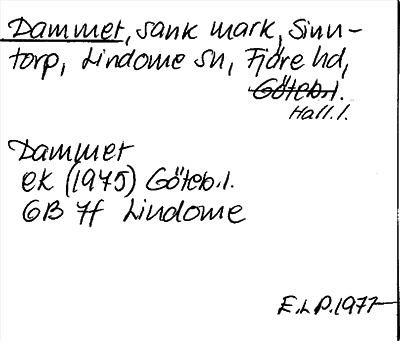 Dammet, sank mark, Sinn-
torp, Lindome sn, Fjäre hd,
Göteb.l.
Hall.l.
Dammet
ek (1975) Göteb.l.
6B 7f Lindome
E.L.P. 1977